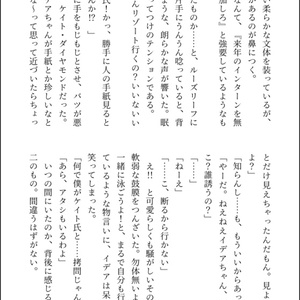 い柔らかな文体を装っているが、
があるのが鼻につく。
なんて、『来年のインターンを無
加しろ』と強要しているような
たものか……と、ルーズリーフに
手にうんうん唸っていると、背
ような、朗らかな声が響いた。眠
てつけのテンションである。
んリゾート行くの？いいないい
氏！かっ、勝手に人の手紙見ると
んか!?」
に手をもじもじとさせ、バツが悪
ケイト・ダイヤモンドだった。
アちゃんが手紙とか珍しいなと
なーって思って近づいたらちょっ
とだけ見えちゃったんだもん。見よ
よ？」
「知らんし……も、もういいからあっ
「やーだ。ねえねえイデアちゃん、
こ？誰誘うの？」
「ねーえ」
「……こ、断るから行かない」
え!! と可愛らしくも騒がしいその
軟弱な鼓膜をつんざいた。勿体無いよ
一緒に泳ごうよ！と、まるで自分も行
ているような物言いに、イデアは呆
笑ってしまった。
「何で僕がケイト氏と……拷問じゃん
「あら、アタシもいるわよ」
いつの間にいたのか、背後に感じる
二のもの。間違うはずがない。